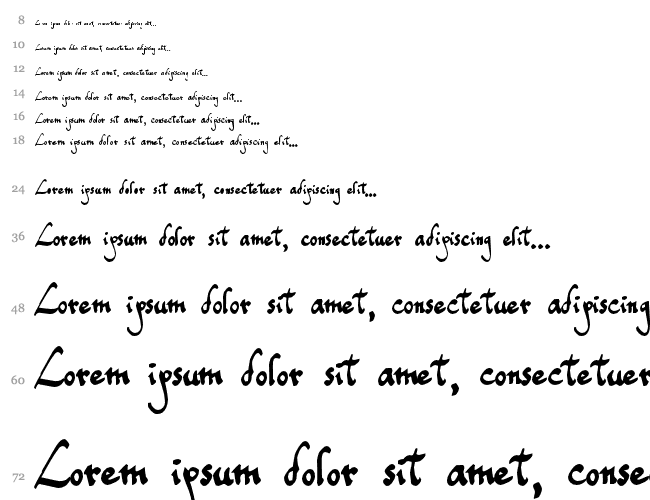 8 Lorem ipsum dolor sit amet, consectetuer adipiscing elit...
10 Lorem ipsum dolor sit amet, consectetuer adipiscing elit...
12 Lorem ipsum dolor sit amet, consectetuer adipiscing elit...
14 Lorem ipsum dolor sit amet, consectetuer adipiscing elit...
16 Lorem ipsum dolor sit amet, consectetuer adipiscing elit...
18 Lorem ipsum dolor sit amet, consectetuer adipiscing elit...
24 Lorem ipsum dolor sit amet, consectetuer adipiscing elit...
36 Lorem ipsum dolor sit amet, consectetuer adipiscing elit...
48 Lorem ipsum dolor sit amet, consectetuer adipiscing
60 Lorem ipsum dolor sit amet, consectetuer
72 Lorem ipsum dolor sit amet, conse